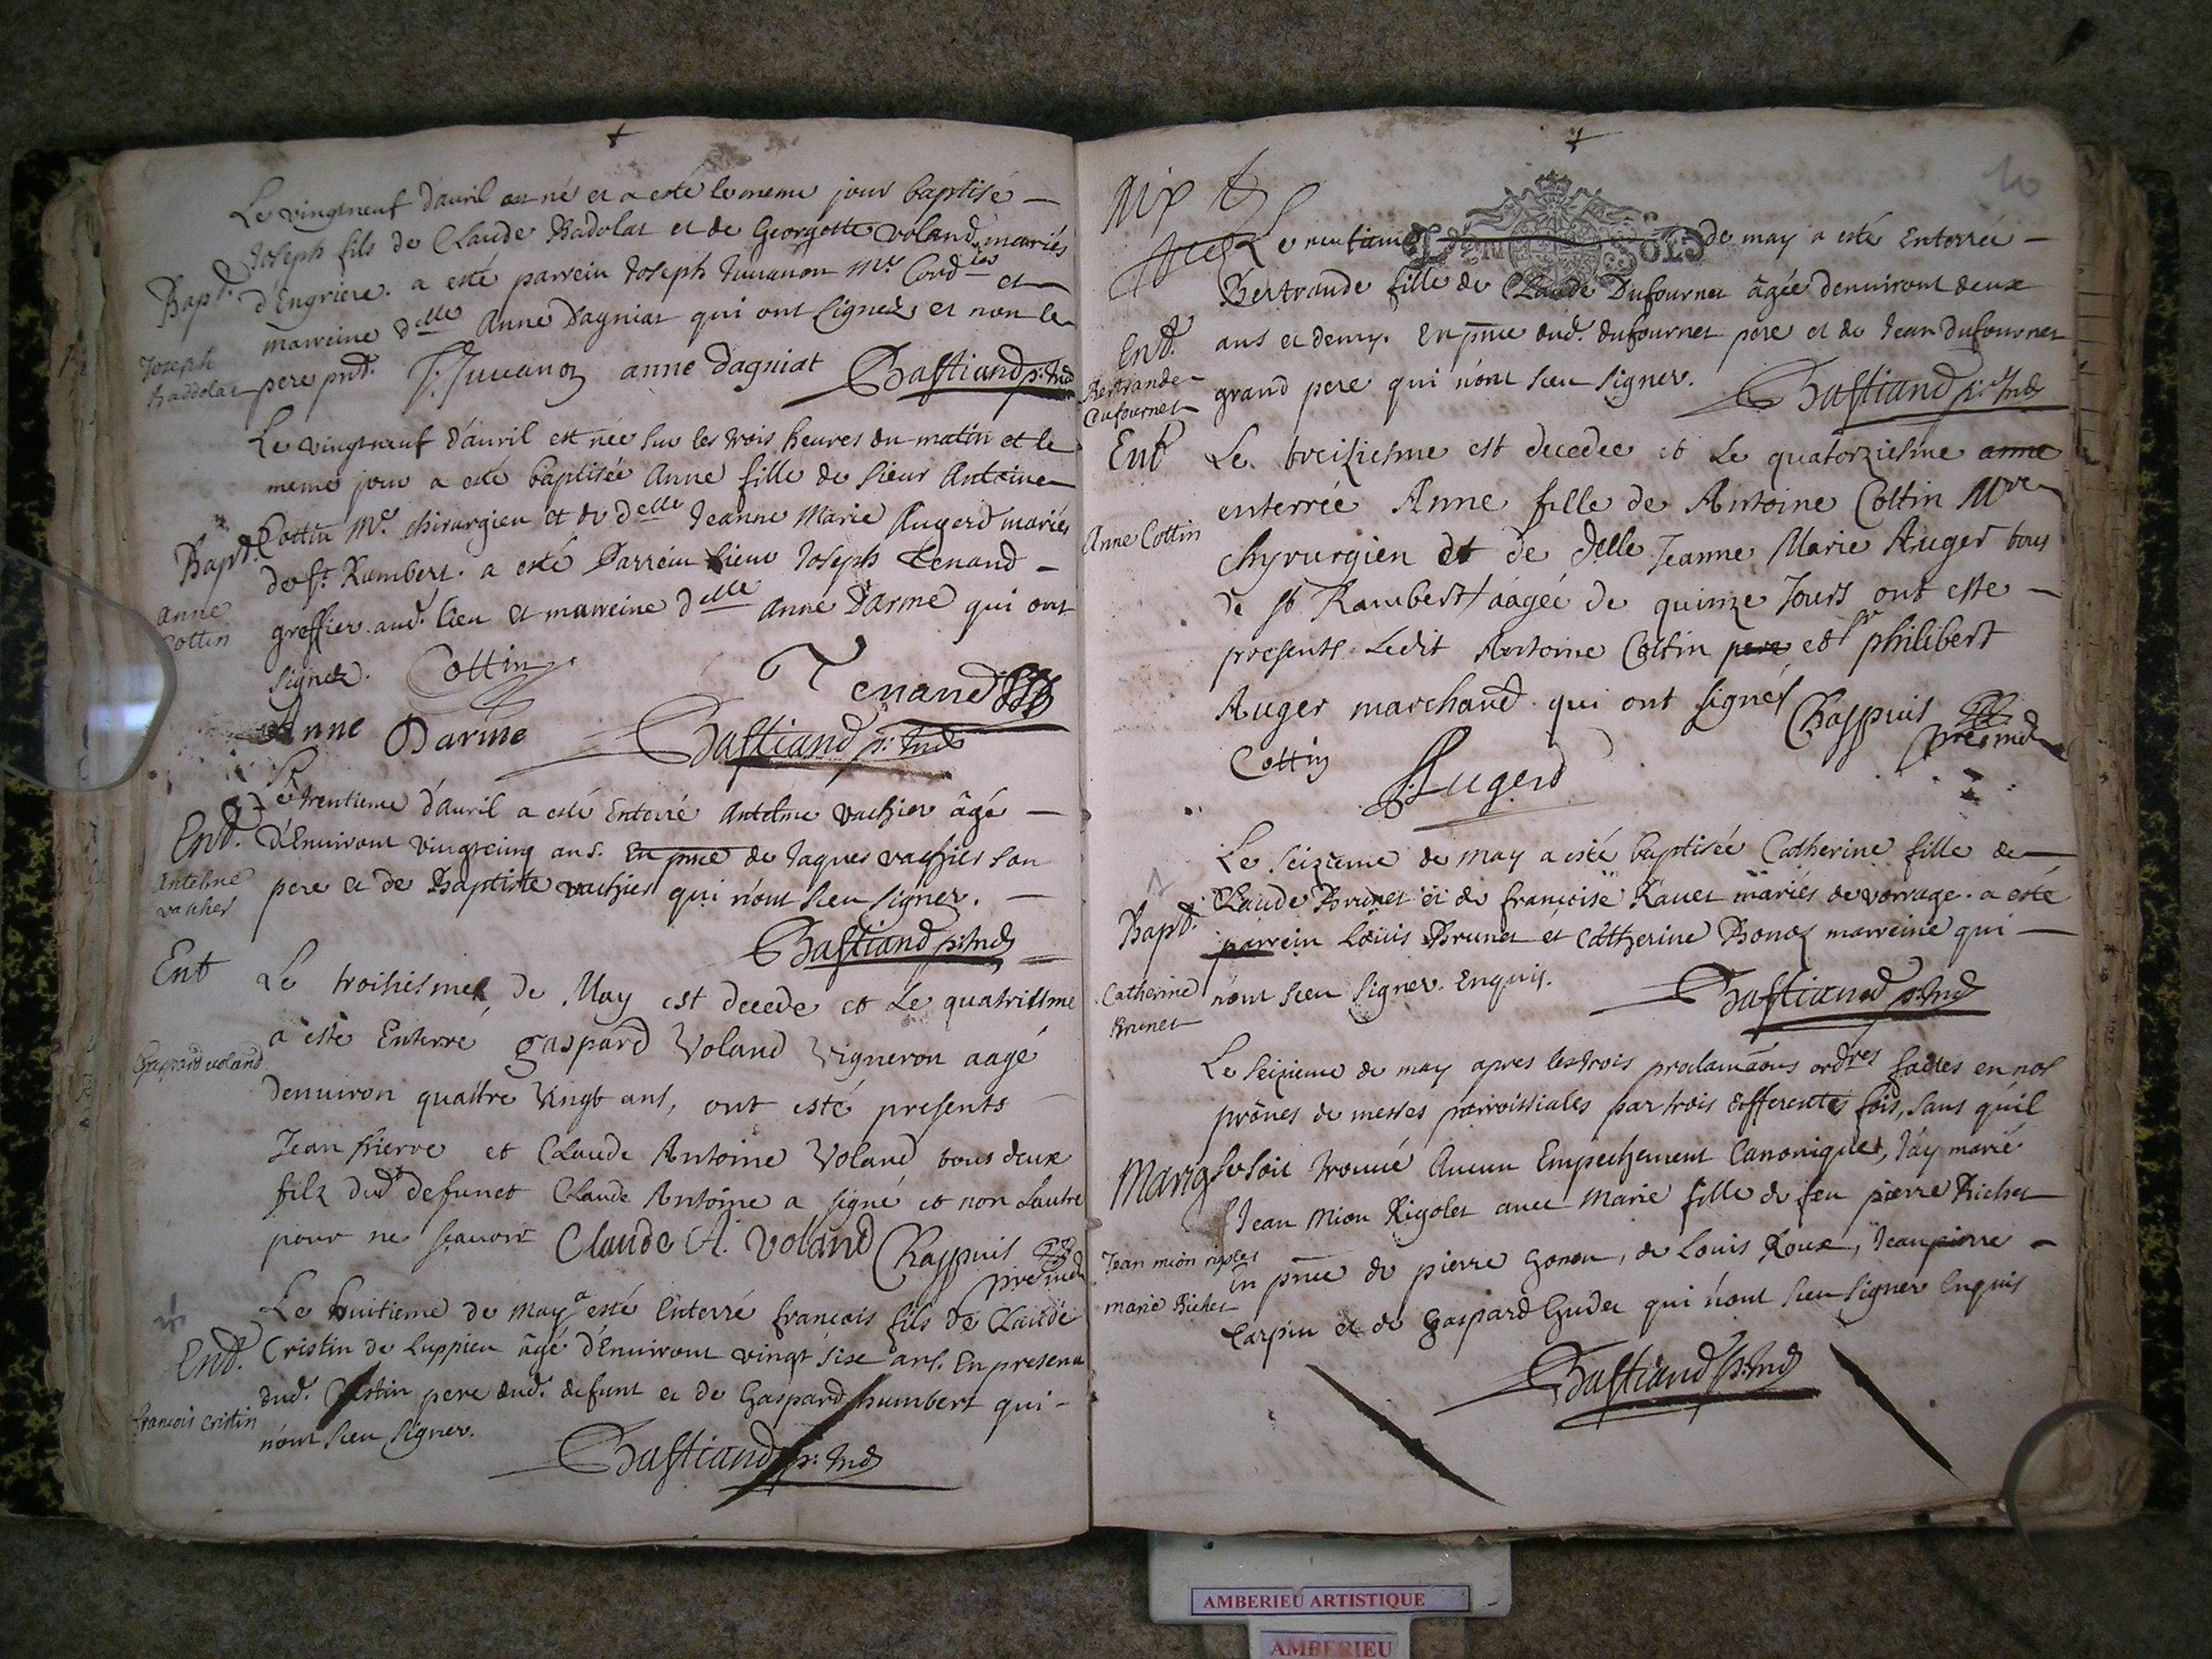 Le vingtneuf d'avril est né et a esté le meme jour baptisé
Joseph fils de Claude Badolat et de Georgette Voland mariés
Bapt. d'Engriere. a esté parrein Joseph Juvanon Mre Cordier et
marreine delle Anne Dagniat qui ont signez et non le
Joseph
Baddolat
pere pnt. J. Juvanon anne Dagniat Bastiand p: Ind
Le vingtneuf d'avril est née sur les trois heures du matin et le
meme jour a esté baptisée Anne fille de sieur Antoine
Bapt. Cottin Mre chirurgien et de delle Jeanne Marie Augerd mariés
de St. Rambert. a esté Parrein sieur Joseph Tenand
anne
Cottin
greffier aud. lieu et marreine delle Anne Darme qui ont
signez. Cottin Tenand
Anne Darme Bastiand p: Ind
Le trentieme d'avril a esté Enterré Antelme Vachier âgé
Ent. d'Environt vingtcinq ans. En pnce de Jaques vachier son
Antelme
vacher
pere et de Baptiste vachier qui n'ont sceu signer.
Bastiand p: Ind
Ent Le troisiesme de May est decede et Le quatriesme
a este Enterré gaspard Voland Vigneron aagé
Gaspard voland
denviron quattre Vingt ans, ont esté presents
Jean pierre et Claude Antoine Voland tous deux
filz dudt defunct Claude Antoine a signé et non Lautre
pour ne sçavoir Claude A. Voland Chappuis
Le huitieme de may a esté Enterré françois fils de Claude
Ent. Cristin de Luppieu âgé d'Environt vingt sixe ans. En presence
dud. Cristin pere dud. defunt et de Gaspard humbert qui
François cristin
n'ont sceu signer.
Bastiand p: Ind
10
Le neufieme de may a esté Enterrée
Bertrande fille de Claude Dufournet âgée denviront deux
Ent. ans et demy. En pnce dud. dufournet pere et de Jean Dufournet
Bertrande
Dufournet
grand pere qui n'ont sceu signer. Bastiand p: Ind
Ent Le treiziesme est decedee et Le quatorziesme anne
enterrée Anne fille de Antoine Cottin Mre
Anne Cottin
chyrurgien et de delle Jeanne Marie Auger tous
de st Rambert aagée de quinze Jours ont esté
presents Ledit Antoine Cottin pere et sr philibert
Auger marchand qui ont signés Chappuis
Cottin Augerd
Le seizieme de may a esté baptisée Catherine fille de
Claude Brunet et de françoise Ravet mariés de vorrage. a esté
Bapt. parrein Loüis Brunet et Catherine Bonoz marreine qui
Catherine
Brunet
n'ont sceu signer. Enquis. Bastiand p: Ind
Le seizieme de may apres les trois proclamaõns ordres faites en nos
prônes de messes parroissiales par trois differentes fois, sans qu'il
Mariag se soit trouvé Aucun Empechement Canonique, j'ay marié
Jean Mion Rigolet avec Marie fille de feu pierre Richet
Jean mion
marie Richet
En pnce de pierre Gonon, de Louis Roux, Jean pierre
Carpin et de Gaspard Gudet qui n'ont sceu signer Enquis
Bastiand p: Ind
AMBERIEU ARTISTIQUE
AMBERIEU